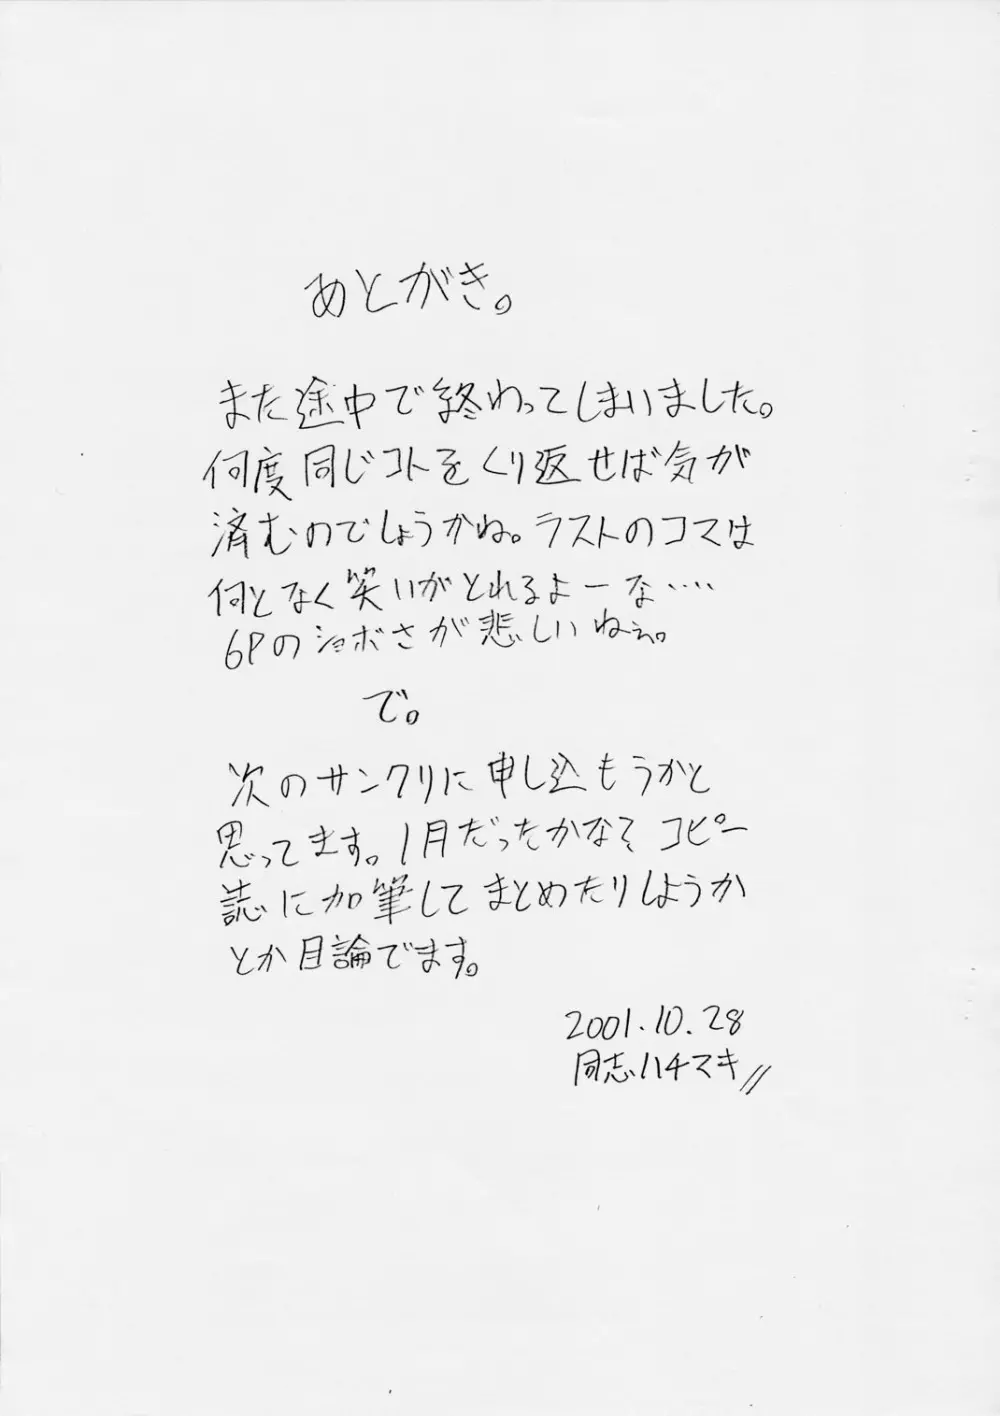 あとがき。
また途中で終わってしまいました。
何度同じコトをくり返せば気が
済むのでしょうかね。ラストのコマは
何となく笑いがとれるよーな‥‥
6Pのショボさが悲しいねぇ。
で。
次のサンクリに申し込もうかと
思ってます。1月だったかな？コピー
誌に加筆してまとめたりしようか
とか目論でます。
2001.10.28
同志ハチマキ//